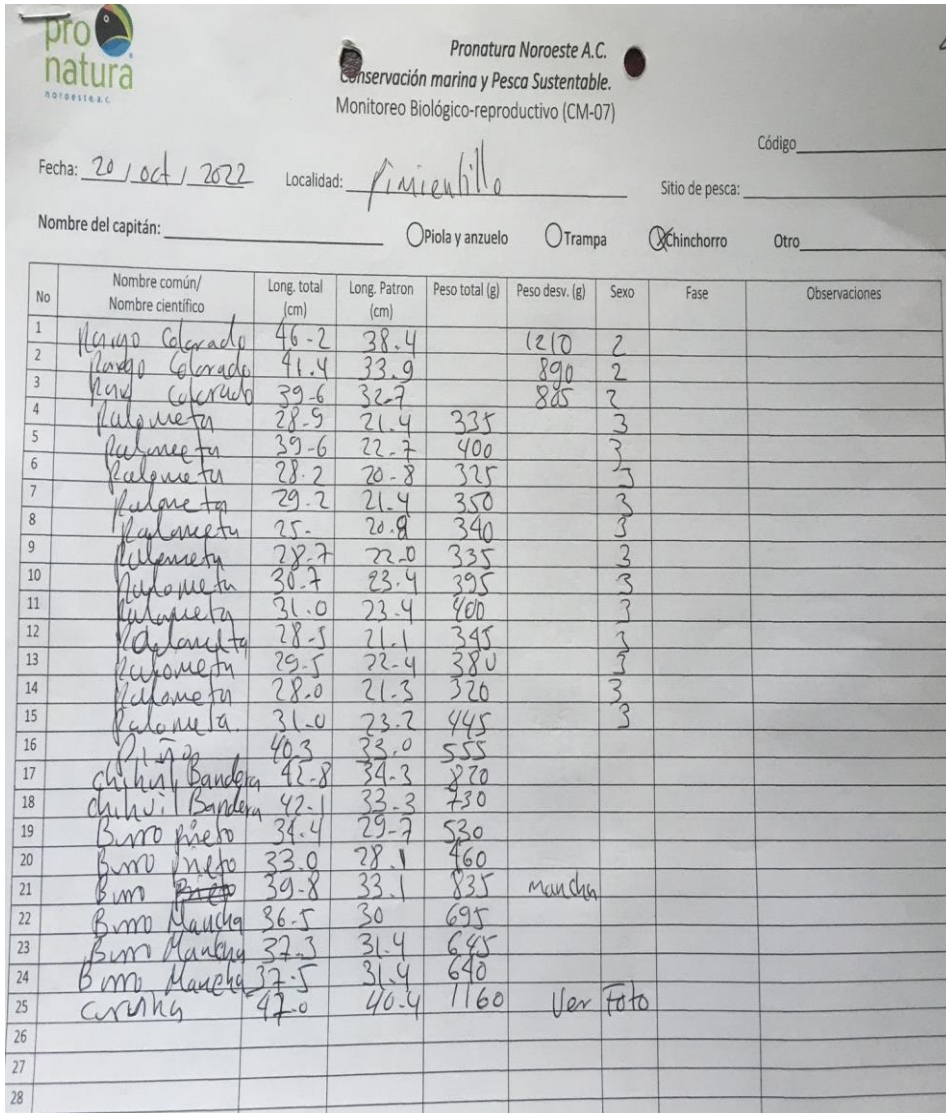 pro
natura
noroeste a.c.
Pronatura Noroeste A.C.
Conservación marina y Pesca Sustentable.
Monitoreo Biológico-reproductivo (CM-07)
Código
Fecha: 20 / oct / 2022 Localidad: Pimientillo Sitio de pesca:
Nombre del capitán: Piola y anzuelo Trampa Chinchorro Otro
No Nombre común/ Nombre científico Long. total (cm) Long. Patron (cm) Peso total (g) Peso desv. (g) Sexo Fase Observaciones
1 Pargo Colorado 46-2 38.4 1210 2
2 Pargo Colorado 41.4 33.9 890 2
3 Colorado 39-6 32-7 2
4 Palometa 28-9 21.4 335 3
5 Palometa 39-6 22-7 400 3
6 Palometa 28.2 20-8 325 3
7 Palometa 29.2 21.4 350 3
8 Palometa 25- 340 3
9 Palometa 28.7 22-0 335 3
10 Palometa 30.7 23.4 395 3
11 Palometa 31.0 23.4 400 3
12 Palometa 28-5 21.1 345 3
13 Palometa 29-5 22-4 380 3
14 Palometa 28.0 21.3 320 3
15 Palometa. 31-0 23.2 445 3
16 40.3 33.0 555
17 chihuil Bandera 42-8 34-3 870
18 chihuil Bandera 42-1 33-3 730
19 Burro prieto 34.4 29-7 530
20 Burro prieto 33.0 28.1 460
21 Burro Prieto 39-8 33.1 835 mancha
22 Burro Mancha 36-5 30 695
23 Burro Mancha 37.3 31.4 645
24 Burro Mancha 37-5 31.4 640
25 47.0 40.4 1160 Ver Foto
26
27
28